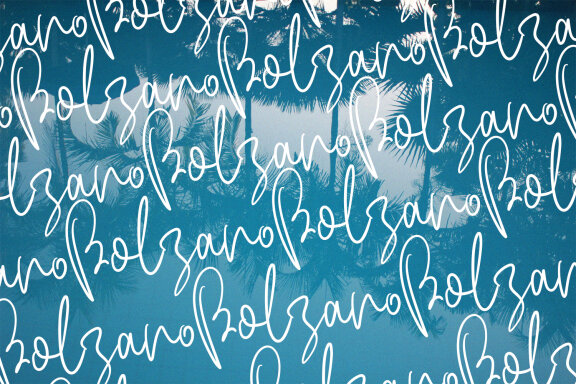 zano Bolzano
Bolzano Bolzano Bolzano
olzano Bolzano Bolzano B
ano Bolzano Bolzano Bol
Bolzano Bolzano Bolzan
Bolzano Bolz